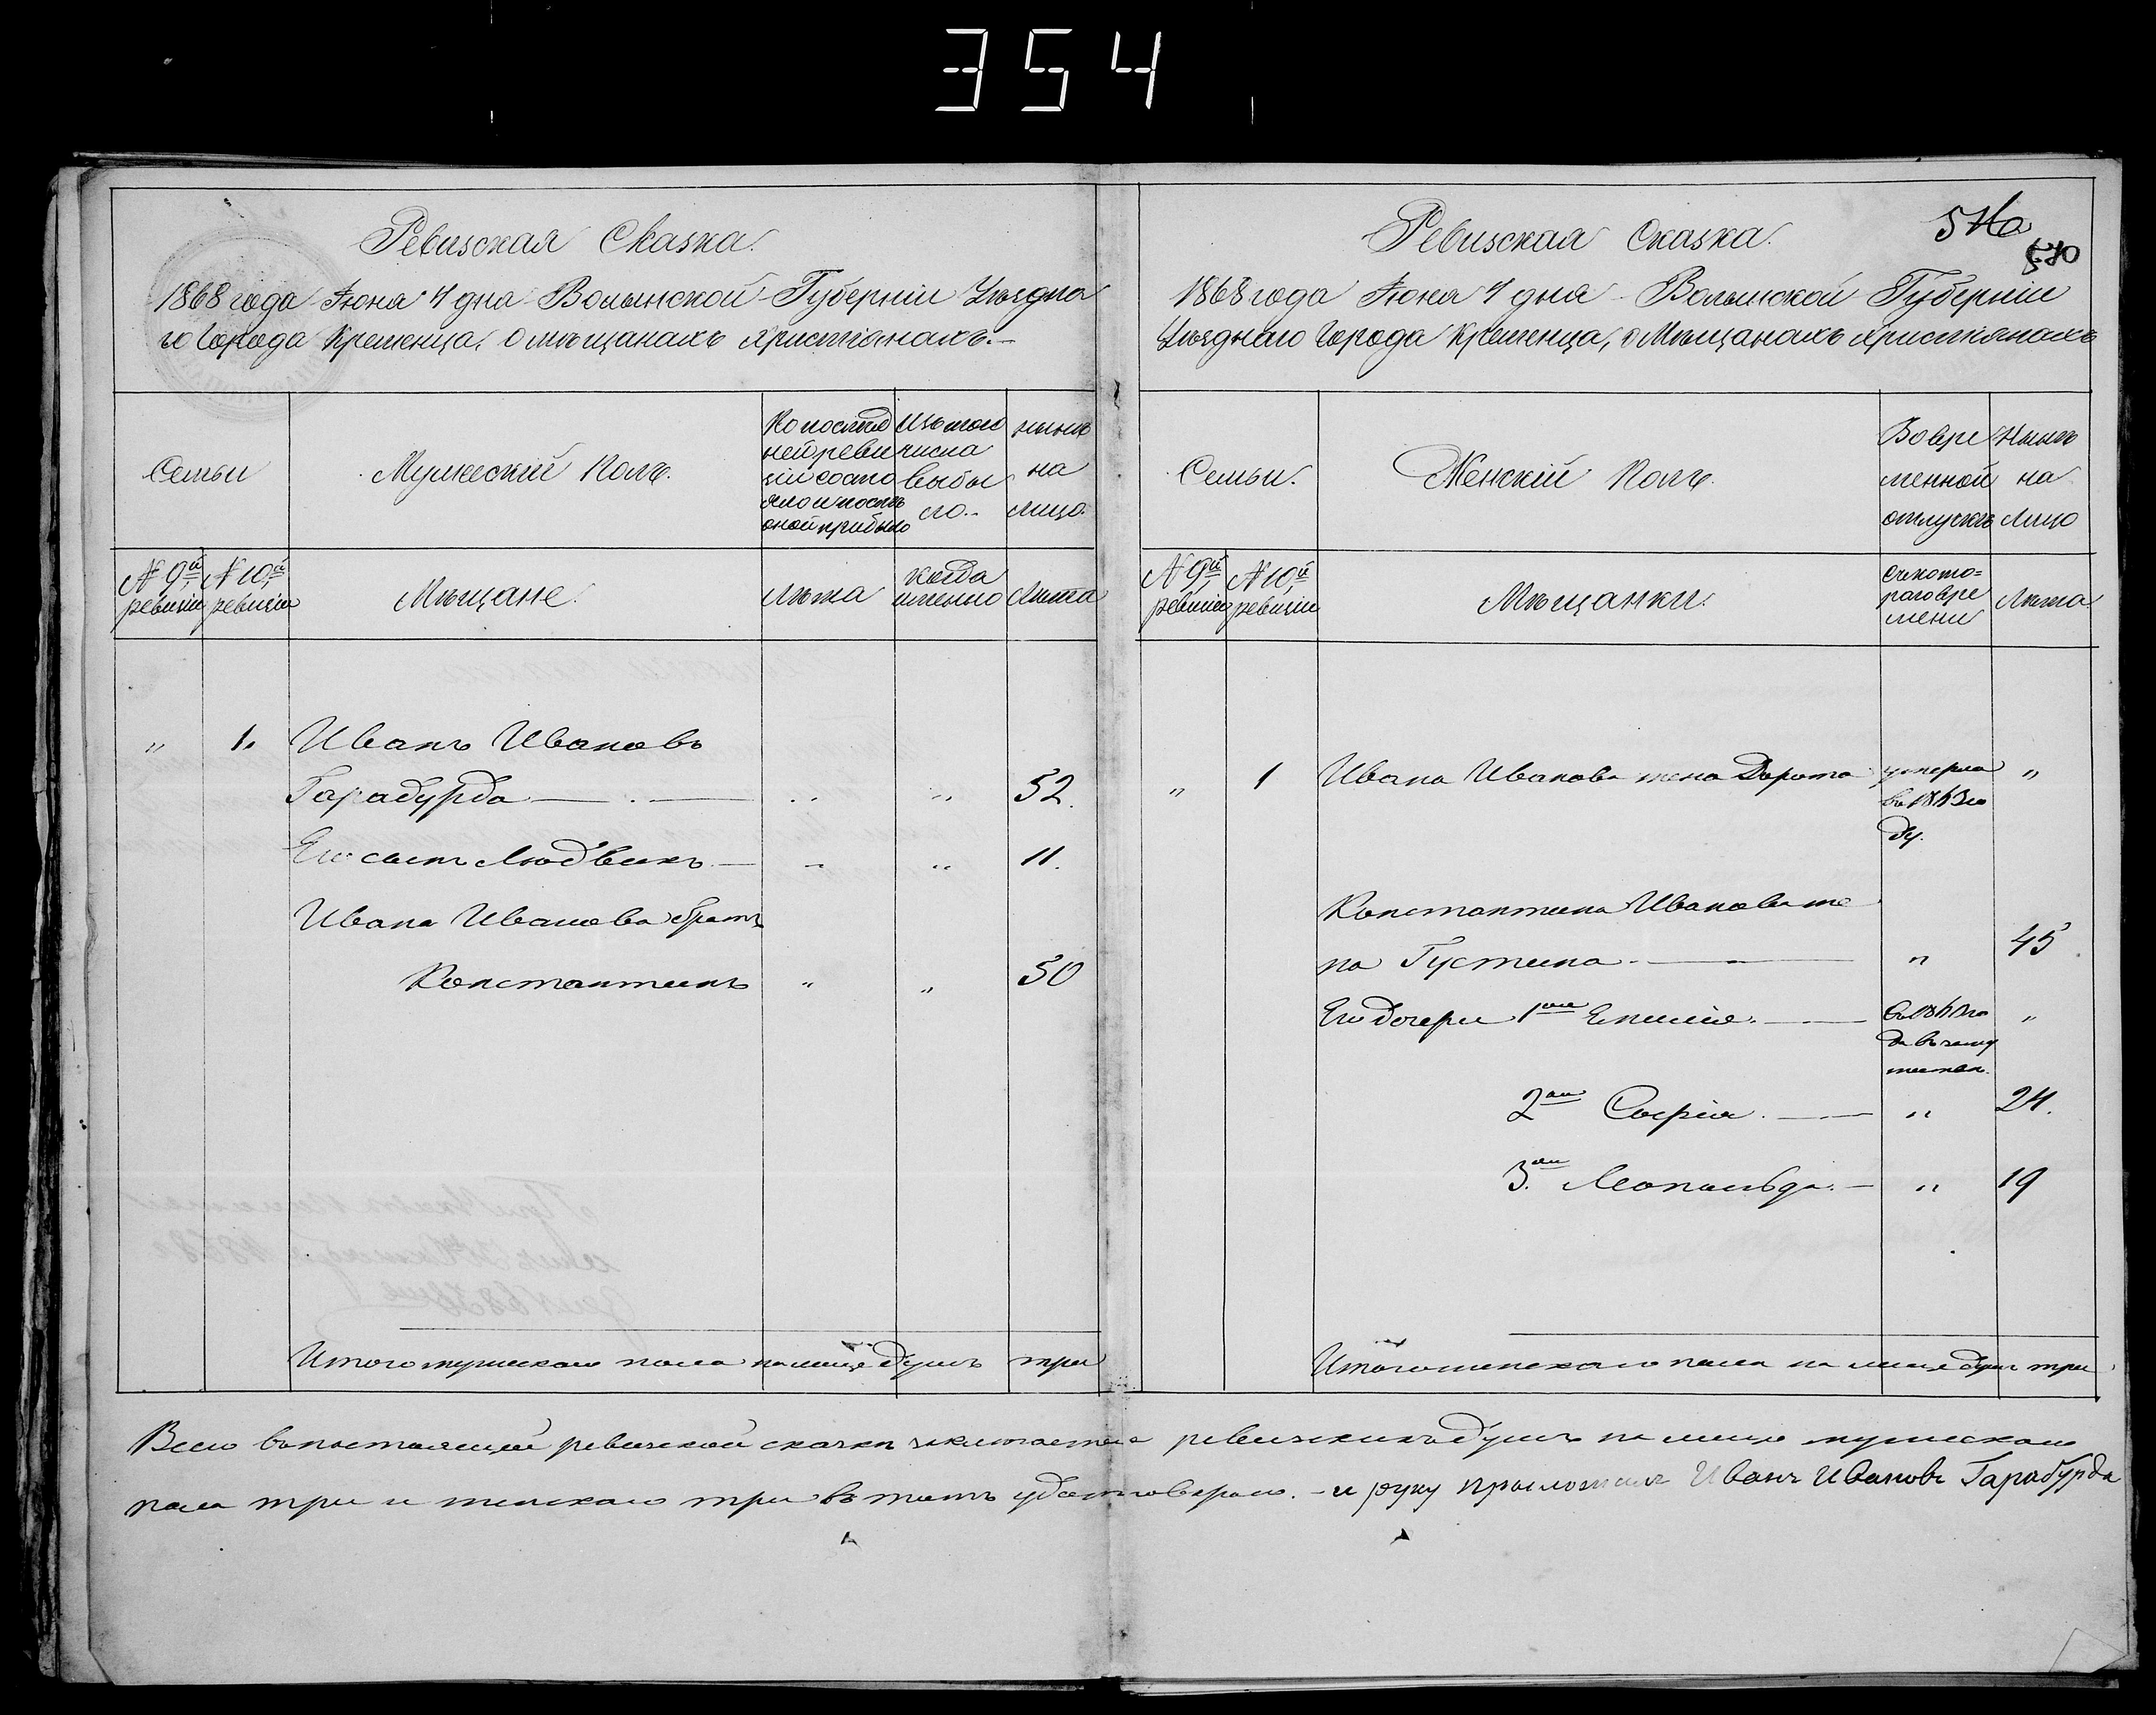 354
Ревизская Сказка.
1868 года Июня 4 дна Волынской Губерніи Уѣздна
го Города Кременца, о мѣщанахъ Христіянахъ.–
Семьи
Мужескій Полъ.
По послѣд
ней реви
зіи состо
яло и послѣ
оной прибыло
Изъ того
числа
выбы
ло..
нынѣ
на
лицо.
№ 9й ревизіи
№ 10,й ревизіи
Мѣщане.
Лѣта
когда
именно
Лѣта
" 1. Иванъ Ивановъ
Гарабурда — . — .. " 52.
Его сынъ Людвикъ — " " 11.
Ивана Иванова братъ
Константинъ " " 50
Итого мужескаго пола на лице душъ три
Ревизская Сказка.
530
1868 года Июня 4 дня – Волынской Губерніи
Уѣзднаго Города Кременца, о Мѣщанахъ Христіянахъ
Семьи.
Женскій Полъ.
Во вре
менной
отлучкѣ
Нынѣ
на
Лицо
№ 9й ревизіи
№ 10,й ревизіи
Мѣщанки.
съ кото=
раго вре
мени
Лѣта
" 1 Ивана Иванова жена Дорота умерла "
ду.
Константина Иванова же
на Густина. — " 45.
Его дочери 1ая Емилія. — "
да въ заму
жестве.
2ая Софія. — " 24.
3.ая Леопольда. — " 19
Итого женскаго пола на лице душъ три
Всего въ настоящей ревизской сказкѣ заключается ревизскихъ душъ на лице мужескаго
пола три и женскаго три въ томъ удостоверяю. – и руку приложилъ Иванъ Ивановъ Гарабурда